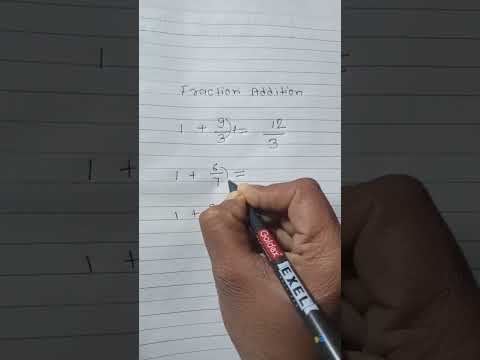 Fraction Addition
1 + 9/3 + = 12/3
1 + 6/7 =
1 +
Goldex EXEL